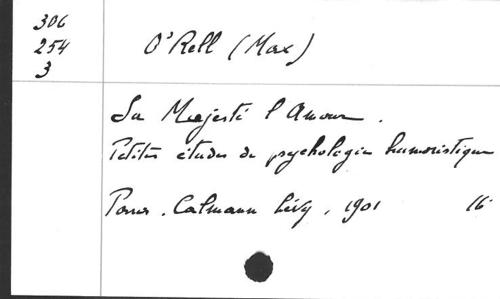 306
254
3
O'Rell (Max)
Sa Majesté l'Amour.
Petites études de psychologie humoristique
Paris. Calmann Lévy, 1901 16°